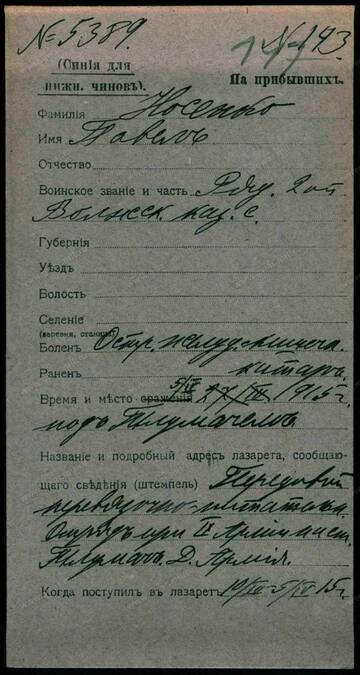 № 5389. № 143
(Синія для
нижн. чиновъ).
На прибывшихъ.
Фамилія Носенко
Имя Павелъ
Отчество
Воинское званіе и часть Ряд. 2 от
Волжск. каз. с.
Губернія
Уѣздъ
Волость
Селеніе
(деревня, станица)
Боленъ Остр. желуд. кишечн.
Раненъ катарръ
Время и мѣсто сраженія 5/IV 1915 г.
подъ Тлумачемъ
Названіе и подробный адресъ лазарета, сообщаю-
щаго свѣдѣнія (штемпель) Передовой
перевязочно-питательн.
Отрядъ при II
Тлумачъ. Д. Армія.
Когда поступилъ въ лазаретъ 5/IV 15 г.